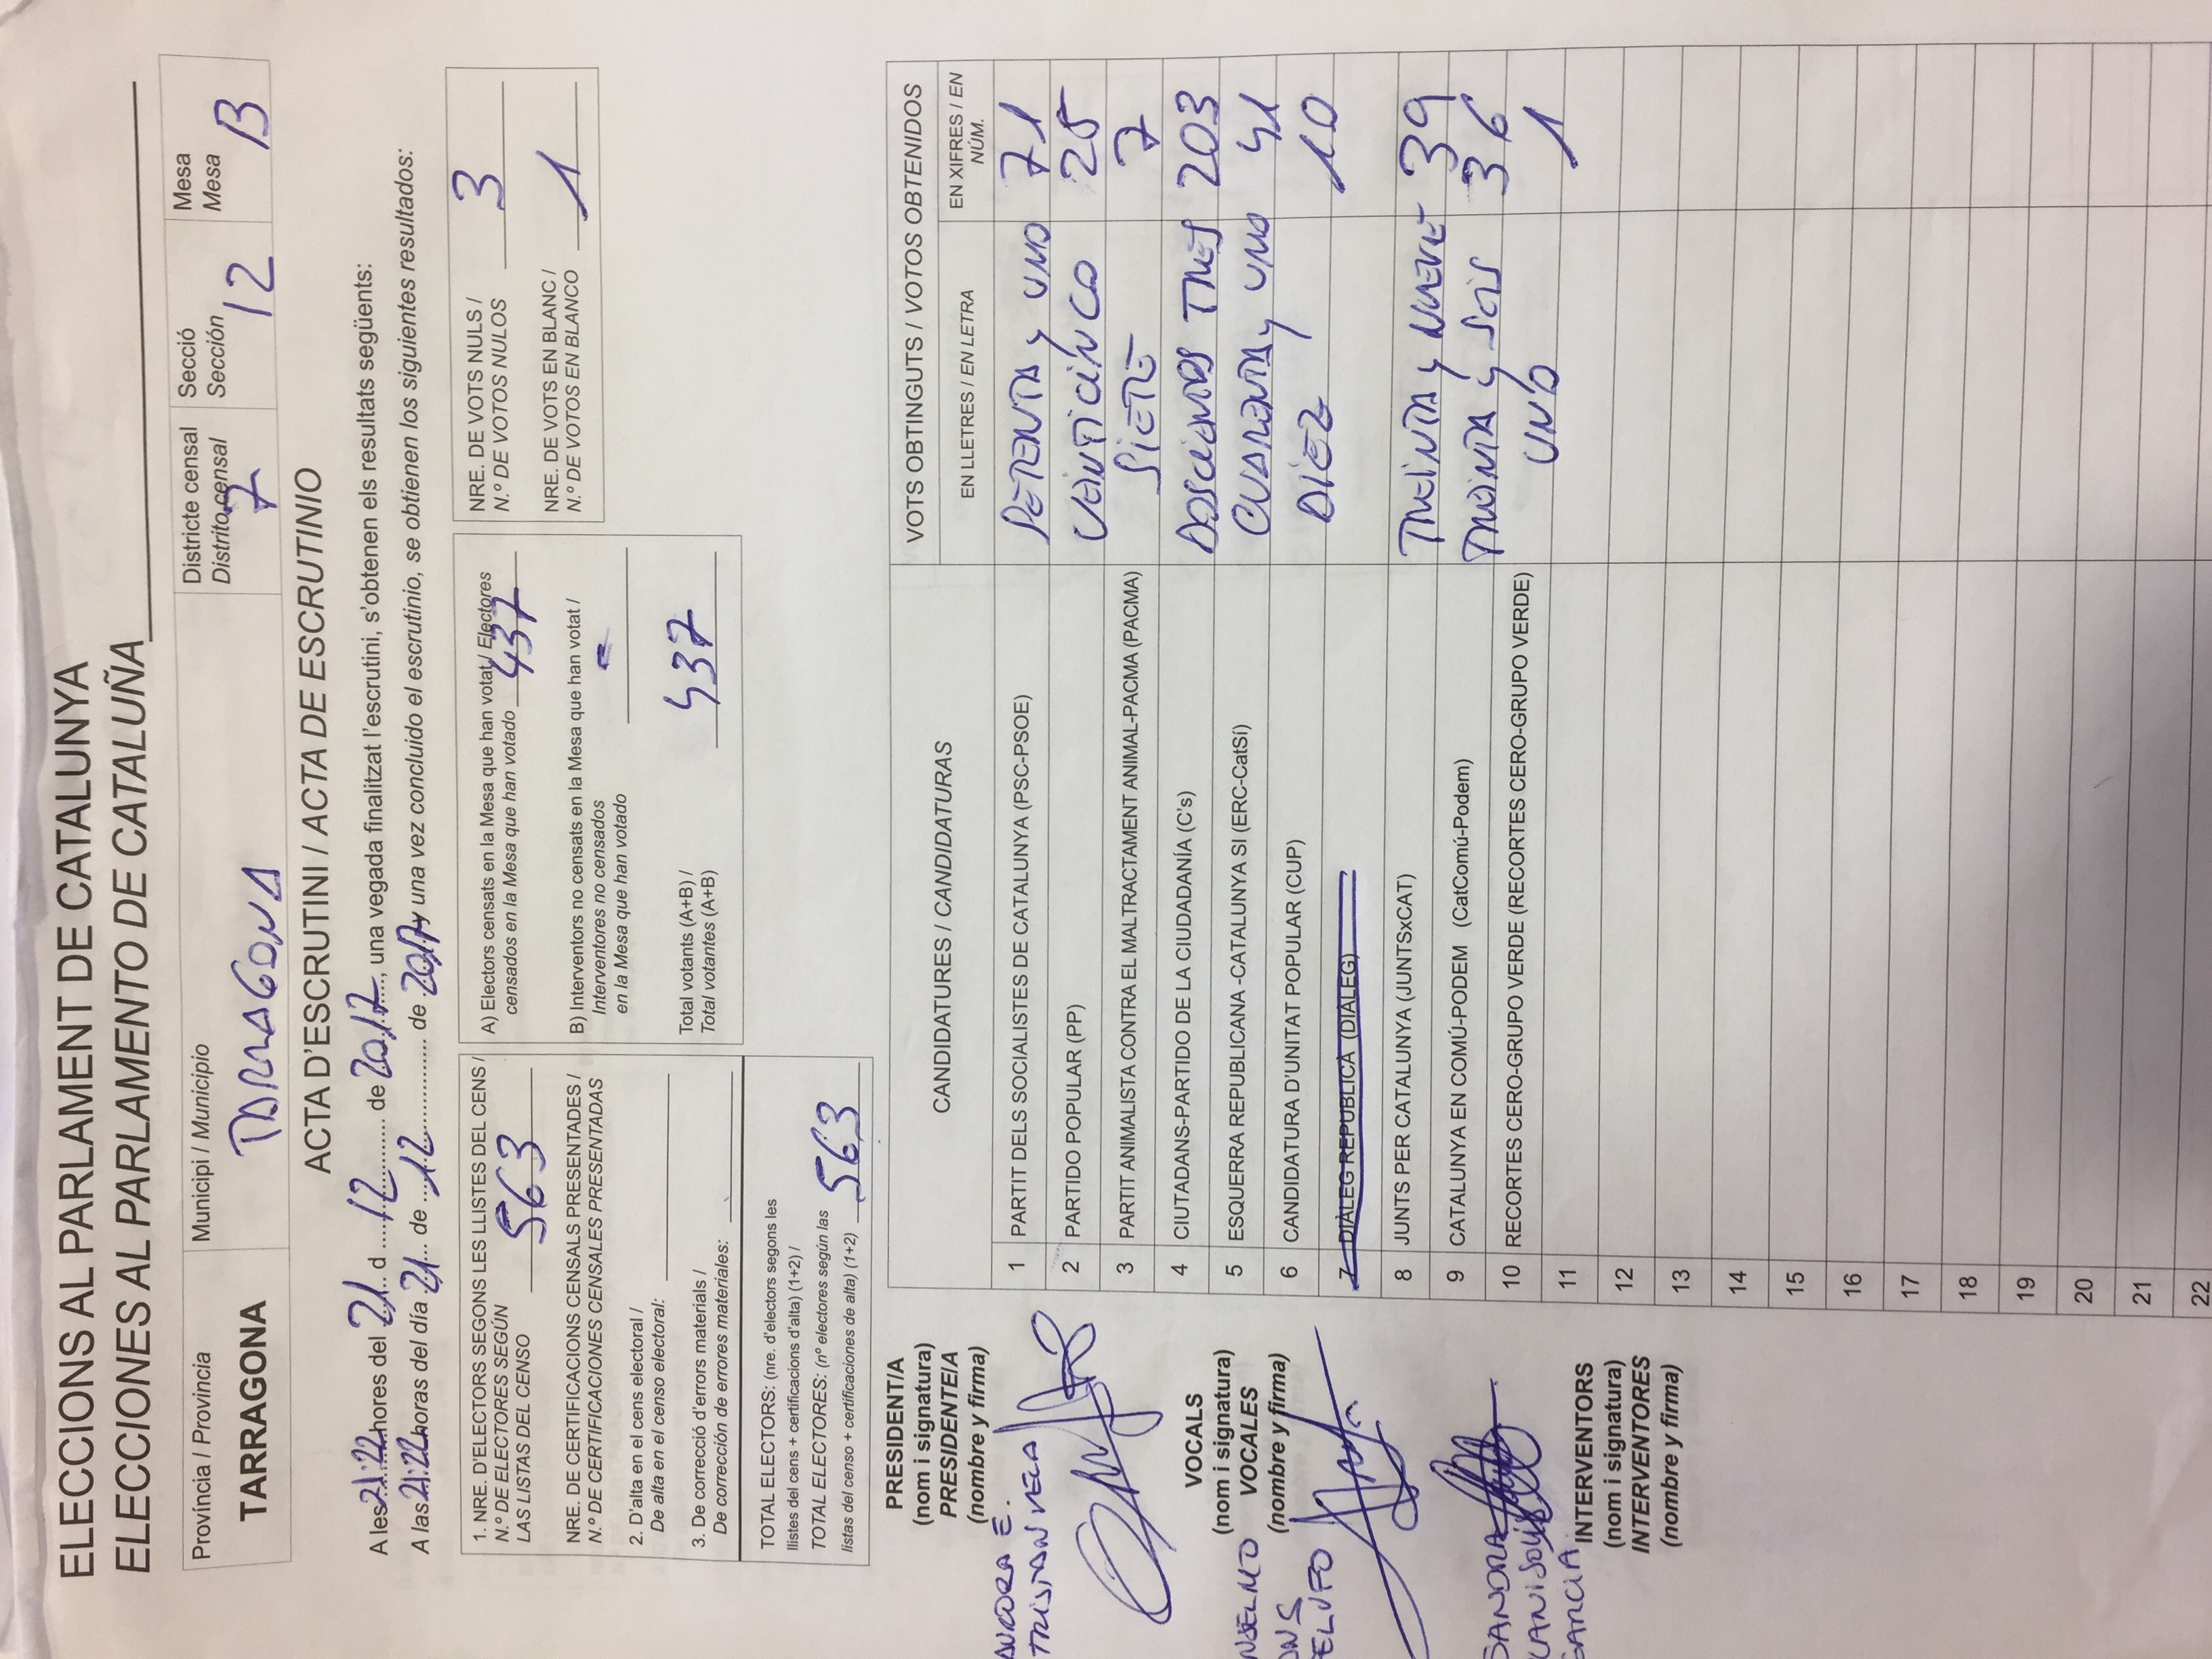 ELECCIONS AL PARLAMENT DE CATALUNYA
ELECCIONES AL PARLAMENTO DE CATALUÑA
Província / Provincia
TARRAGONA
Municipi / Municipio
TARRAGONA
Districte censal
Distrito censal
7
Secció
Sección
12
Mesa
Mesa
B
ACTA D'ESCRUTINI / ACTA DE ESCRUTINIO
A les 21:22 hores del 21 d 12 de 2017, una vegada finalitzat l'escrutini, s'obtenen els resultats següents:
A las 21:22 horas del día 21 de 12 de 2017 y una vez concluido el escrutinio, se obtienen los siguientes resultados:
1. NRE. D'ELECTORS SEGONS LES LLISTES DEL CENS /
N.º DE ELECTORES SEGÚN
LAS LISTAS DEL CENSO 563
NRE. DE CERTIFICACIONS CENSALS PRESENTADES /
N.º DE CERTIFICACIONES CENSALES PRESENTADAS
2. D'alta en el cens electoral /
De alta en el censo electoral:
3. De correcció d'errors materials /
De corrección de errores materiales:
TOTAL ELECTORS: (nre. d'electors segons les
llistes del cens + certificacions d'alta) (1+2) /
TOTAL ELECTORES: (nº electores según las
listas del censo + certificaciones de alta) (1+2) 563
A) Electors censats en la Mesa que han votat / Electores
censados en la Mesa que han votado 437
B) Interventors no censats en la Mesa que han votat /
Interventores no censados
en la Mesa que han votado -
Total votants (A+B) /
Total votantes (A+B) 437
NRE. DE VOTS NULS /
N.º DE VOTOS NULOS 3
NRE. DE VOTS EN BLANC /
N.º DE VOTOS EN BLANCO 1
PRESIDENT/A
(nom i signatura)
PRESIDENTE/A
(nombre y firma)
AURORA E.
TRISTAN VELA
VOCALS
(nom i signatura)
NSELMO VOCALES
(nombre y firma)
ONS
ELUFO
SANDRA
GARCIA
INTERVENTORS
(nom i signatura)
INTERVENTORES
(nombre y firma)
CANDIDATURES / CANDIDATURAS
VOTS OBTINGUTS / VOTOS OBTENIDOS
EN LLETRES / EN LETRA
EN XIFRES / EN
NÚM.
1 PARTIT DELS SOCIALISTES DE CATALUNYA (PSC-PSOE) SETENTA y UNO 71
2 PARTIDO POPULAR (PP) VEINTICINCO 25
3 PARTIT ANIMALISTA CONTRA EL MALTRACTAMENT ANIMAL-PACMA (PACMA) SIETE 7
4 CIUTADANS-PARTIDO DE LA CIUDADANÍA (C's) DOSCIENTOS TRES 203
5 ESQUERRA REPUBLICANA -CATALUNYA SI (ERC-CatSí) CUARENTA y UNO 41
6 CANDIDATURA D'UNITAT POPULAR (CUP) DIEZ 10
7 DIÀLEG REPUBLICÀ (DIÀLEG)
8 JUNTS PER CATALUNYA (JUNTSxCAT) TREINTA y NUEVE 39
9 CATALUNYA EN COMÚ-PODEM (CatComú-Podem) TREINTA y SEIS 36
10 RECORTES CERO-GRUPO VERDE (RECORTES CERO-GRUPO VERDE) UNO 1
11
12
13
14
15
16
17
18
19
20
21
22